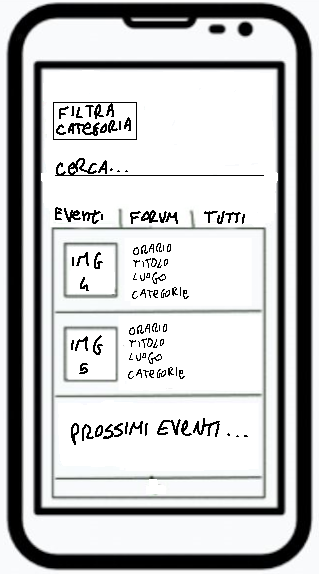 FILTRA
CATEGORIA
CERCA...
EVENTI | FORUM | TUTTI
IMG
4
ORARIO
TITOLO
LUOGO
CATEGORIE
IMG
5
ORARIO
TITOLO
LUOGO
CATEGORIE
PROSSIMI EVENTI...